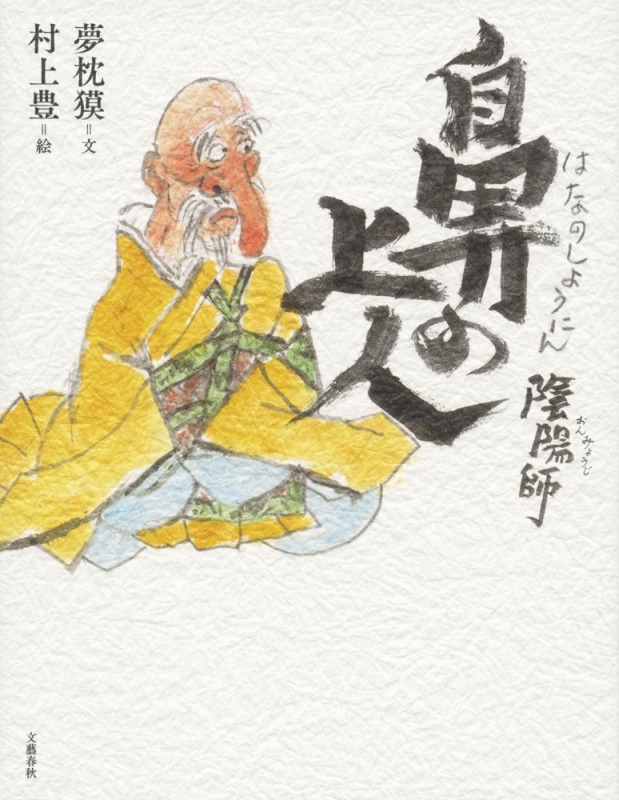 鼻の
上人
はなのしょうにん
陰陽師
おんみょうじ
夢枕獏=文
村上豊=絵
文藝春秋